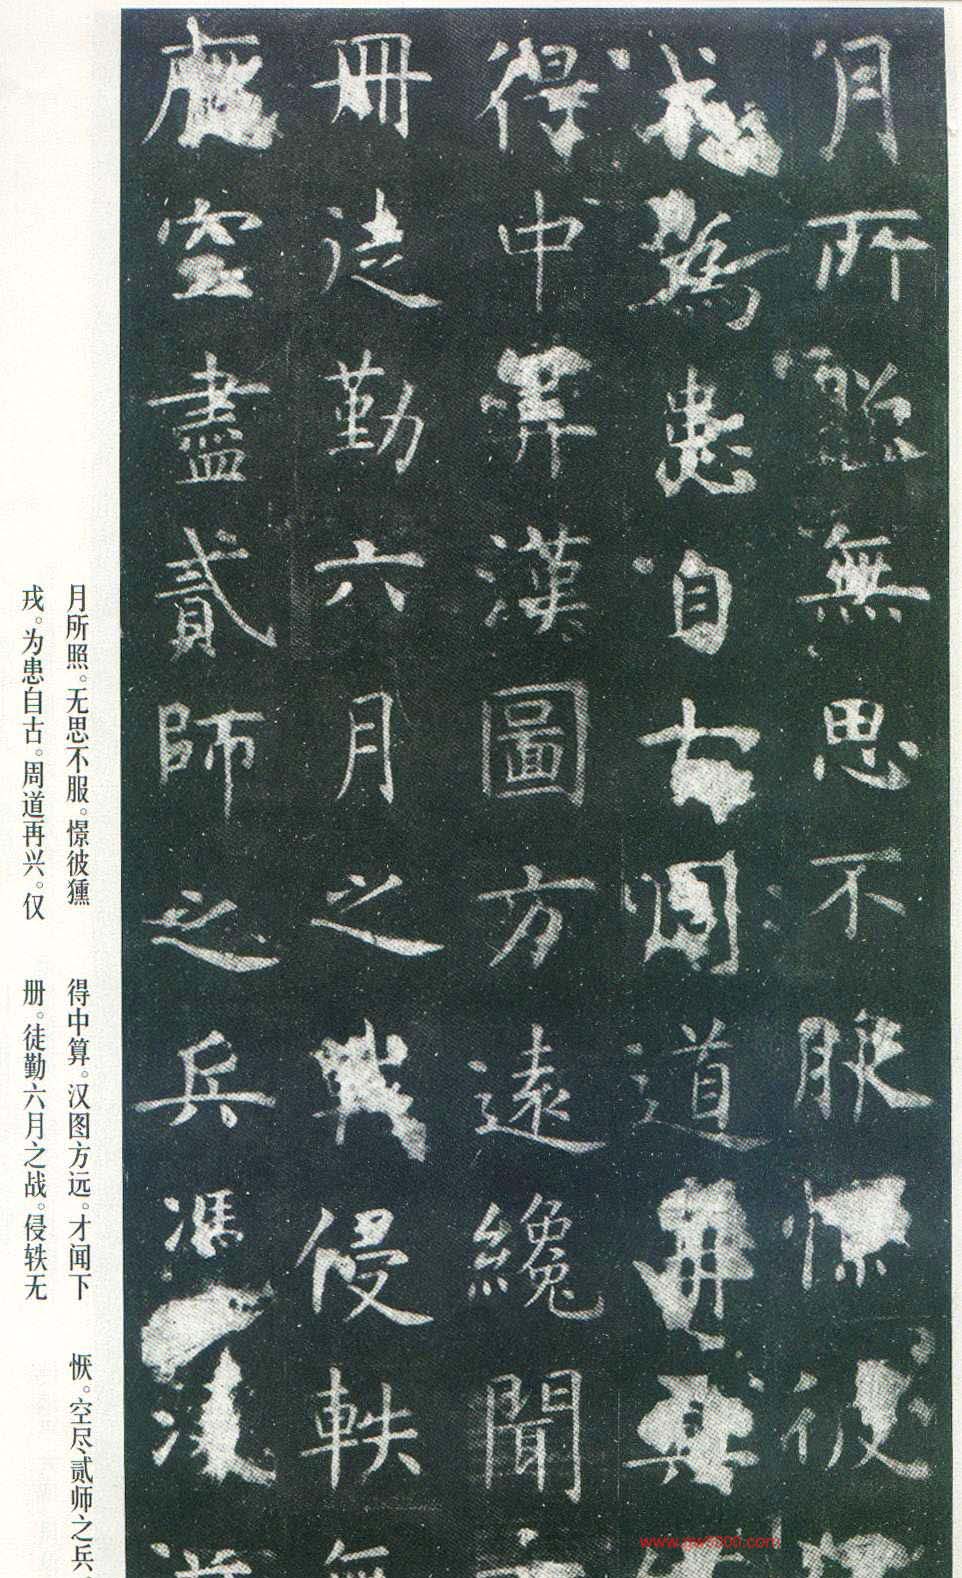 月所照無思不服憬彼
戎為患自古周道再興
得中筭漢圖方遠纔聞
冊徒勤六月之戰侵軼無
厭空盡貳師之兵馮凌
月所照。无思不服。憬彼獯
戎。为患自古。周道再兴。仅
得中算。汉图方远。才闻下
册。徒勤六月之战。侵轶无
恹。空尽、贰师之兵。